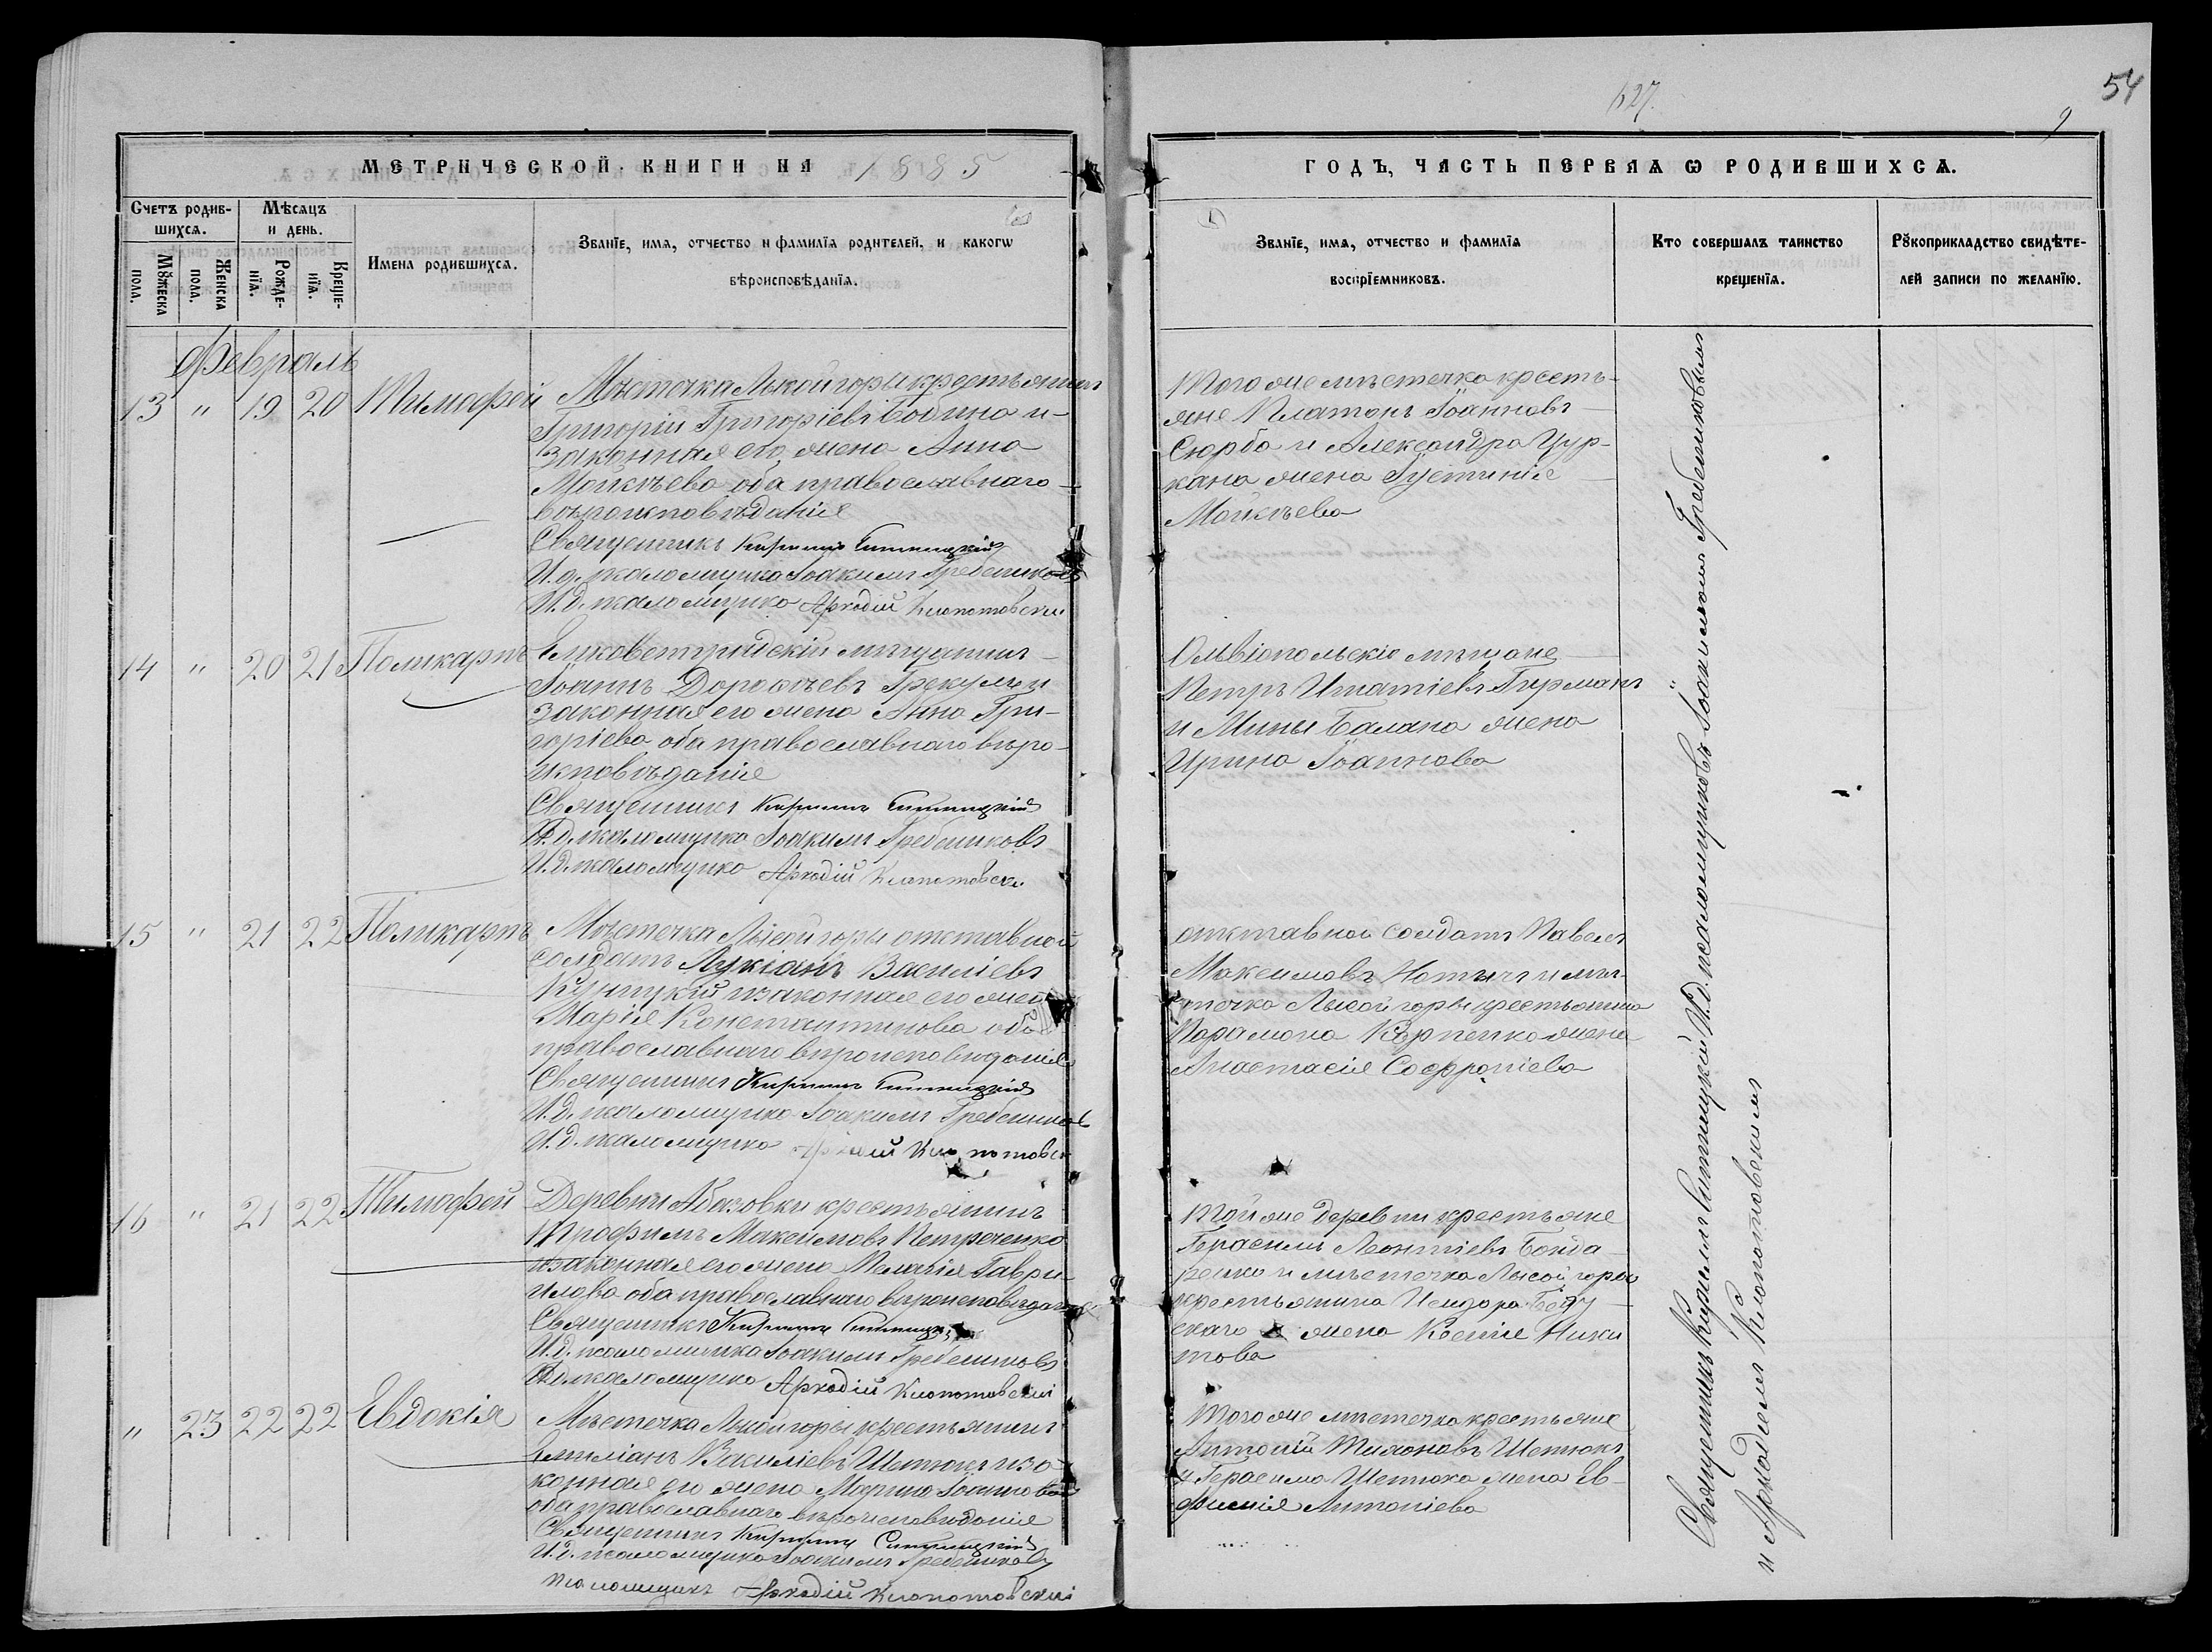 МЕТРИЧЕСКОЙ КНИГИ НА 1885
Счетъ родив-
шихсѧ.
Мѣсѧцъ
и день.
Мꙋжеска
пола.
Женска
пола.
Рожде-
нїѧ.
Креще-
нїѧ.
Имена родившихсѧ.
Званїе, имѧ, отчество и фамилїѧ родителей, и какогѡ
вѣроисповѣданїѧ.
Февраль
13 " 19 20 Тимофей
Мѣстечка Лысой горы крестьянинъ
Григорій Григоріевъ Бобина и
законная его жена Анна
Моисѣева оба православнаго
вѣроисповѣданія
Священникъ Кириллъ Ситницкій
И.д. псаломщика Іоакимъ Гребениковъ
И.д. псаломщика Аркадій Клопотовскій
14 " 20 21 Поликарпъ
Елисаветградскій мѣщанинъ
Іоаннъ Дороѳѣевъ Грекулъ и
законная его жена Анна Гри-
горіева оба православнаго вѣро-
исповѣданія
Священникъ Кириллъ Ситницкій
И.д. псаломщика Іоакимъ Гребениковъ
И.д. псаломщика Аркадій Клопотовскій
15 " 21 22 Поликарпъ
Мѣстечка Лысой горы отставной
солдатъ Лукіанъ Василіевъ
и законная его жена
Марія Константинова оба
православнаго вѣроисповѣданія
Священникъ Кириллъ Ситницкій
И.д. псаломщика Іоакимъ Гребениковъ
И.д. псаломщика Аркадій Клопотовскій
16 " 21 22 Тимофей
Деревни Абазовки крестьянинъ
Трофимъ Максимовъ Петраченко
и законная его жена Мелагія Гаври-
илова оба православнаго вѣроисповѣданія
Священникъ Кириллъ Ситницкій
И.д. псаломщика Іоакимъ Гребениковъ
И.д. псаломщика Аркадій Клопотовскій
" 23 22 22 Евдокія
Мѣстечка Лысой горы крестьянинъ
Емиліанъ Василіевъ Шепнюкъ и за-
конная его жена Марина Іоаннова
оба православнаго вѣроисповѣданія
Священникъ Кириллъ Ситницкій
И.д. псаломщика Іоакимъ Гребениковъ
Псаломщикъ Аркадій Клопотовскій
627.
54
9
ГОДЪ, ЧАСТЬ ПЕРВАѦ Ѡ РОДИВШИХСѦ.
Званїе, имѧ, отчество и фамилїѧ
воспрїемниковъ.
Кто совершалъ таинство
крещенїѧ.
Рꙋкоприкладство свидѣте-
лей записи по желанїю.
Того же мѣстечка кресть-
яне Платонъ Іоанновъ
Сюрба и Александра Цур-
кана жена Іустинія
Моисѣева
Ольвіопольскіе мѣщане
Петръ Игнатіевъ Гирманъ
и Мины Балана жена
Ирина Іоаннова
отставной солдатъ Павелъ
Максимовъ и мѣс-
течка Лысой горы крестьянина
Парамона Карпенко жена
Анастасія Софроніева
Той же деревни крестьяне
Герасимъ Леонтіевъ Бонда-
ренко и мѣстечка Лысой горы
крестьянина Исидора
жена Ксенія Ники-
това
Того же мѣстечка крестьяне
Антоній Тихоновъ Шепнюкъ
и Герасима Шепнюка жена Ев-
фимія Антоніева
Священникъ Кириллъ Ситницкій И.д. псаломщиковъ Іоакимомъ Гребениковымъ
и Аркадіемъ Клопотовскимъ